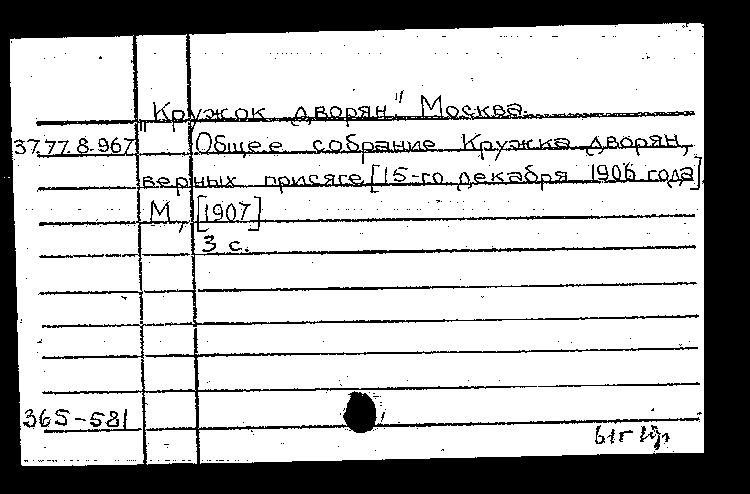 "Кружок дворян." Москва.
37.77.8.967 Общее собрание Кружка дворян,
верных присяге [15-го декабря 1906 года]
М, [1907]
3 с.
365-581